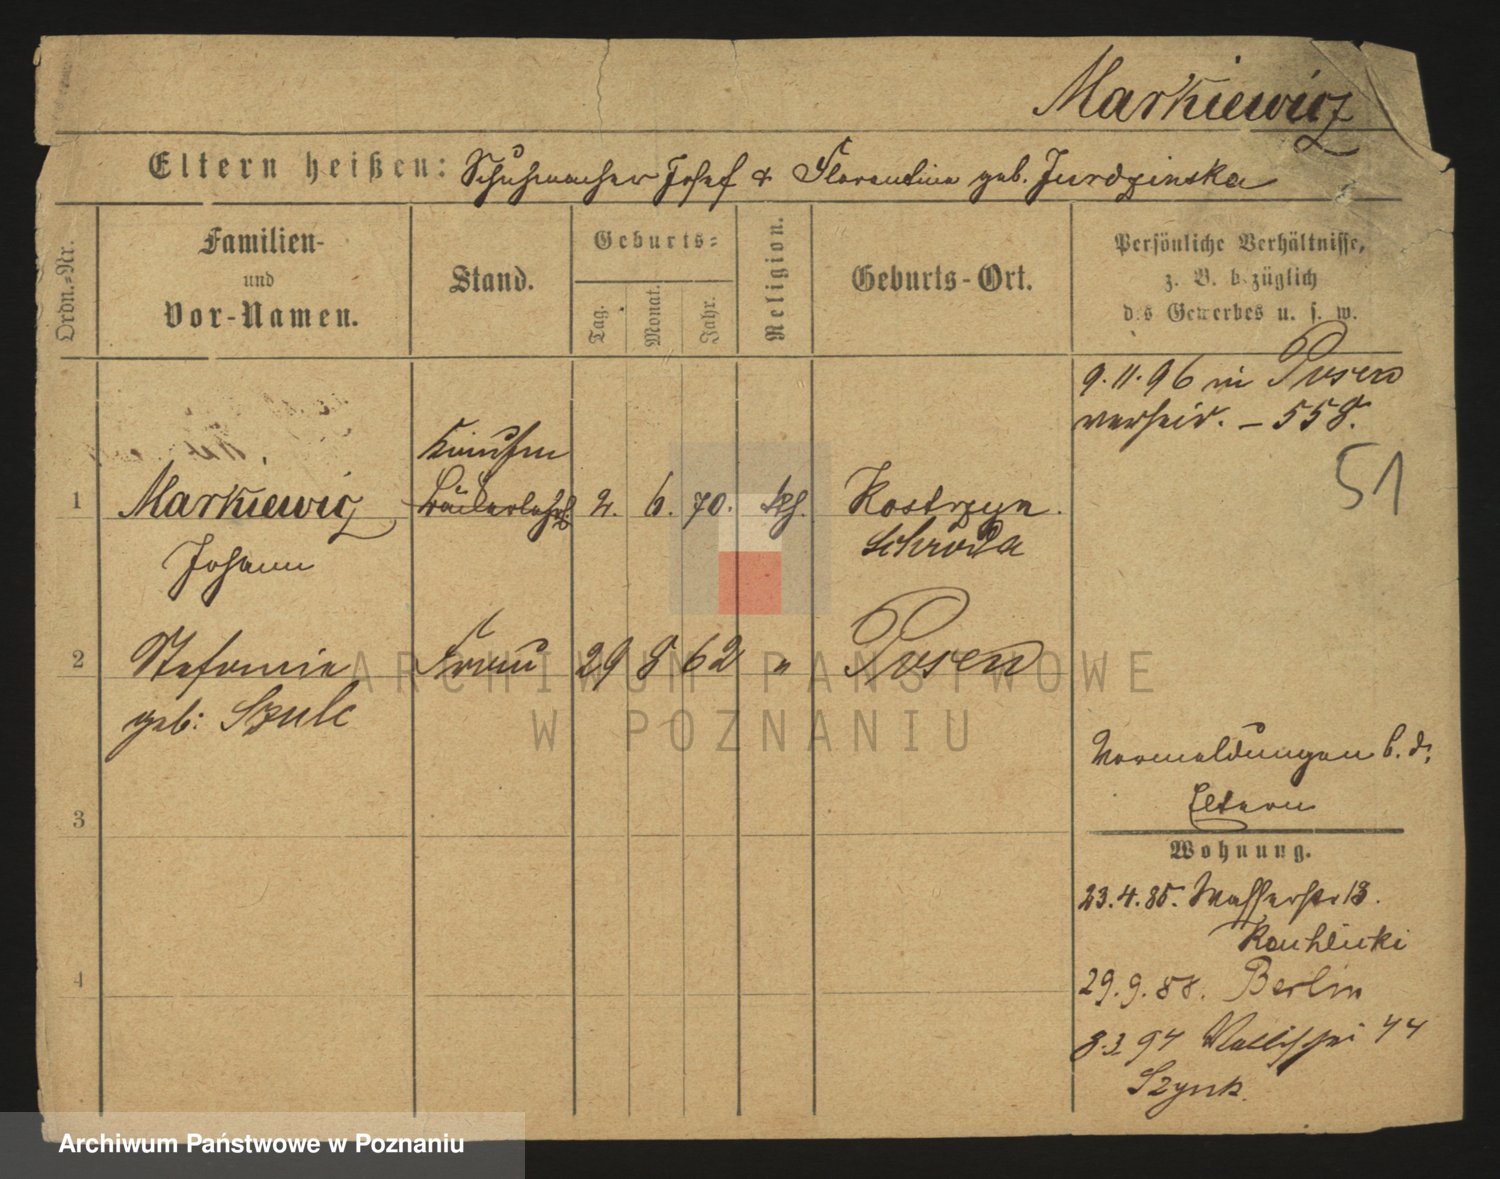 Markiewicz
Eltern heißen: Schuhmacher Josef & Florentine geb. Jurdzinska
Ordn.-Nr.
Familien-
und
Vor-Namen.
Stand.
Geburts-
Tag.
Monat.
Jahr.
Religion.
Geburts-Ort.
Persönliche Verhältnisse,
z. B. bezüglich
des Gewerbes u. s. w.
9.11.96 in Posen
verheir. – 558.
51
1 Markiewicz
Johann
Kaufm
2. 6. 70. kth. Kostrzyn.
Schroda
2 Stefanie Frau 29 8 62 " Posen
geb: Szulc
3
4
Vormeldungen b. d.
Eltern
Wohnung.
23.4.85. Wasserstr 13.
29.9.88. Berlin
94 Wallischei 44
ARCHIWUM PAŃSTWOWE
W POZNANIU
Archiwum Państwowe w Poznaniu